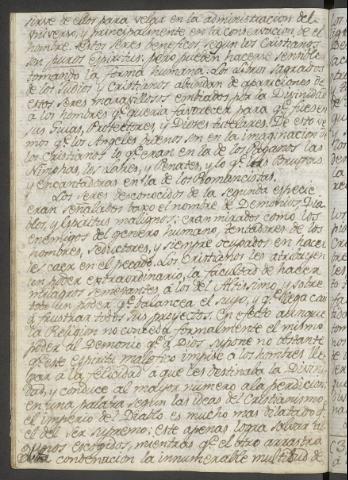 sirve de ellos para velar en la administracion del
universo, y principalmente en la conservacion de el
hombre. Estos seres beneficos segun los Cristianos
son puros Espiritus, pero pueden hacerse sensibles
tomando la forma humana. Los Libros Sagrados
de los Judios y Cristianos abundan de apariciones de
estos seres maravillosos embiados por la Divinidad
a los hombres qe. queria favorecer para qe. fuesen
sus Guias, Protectores y Dioses tutelares. De esto ve
mos qe. los Angeles buenos son en la imaginacion de
los Cristianos lo qe. eran en la de los Paganos las
Nimphas, los Lares, y Penates, y lo qe. las
y encantadoras en la de los Romancistas.
Los Seres desconocidos de la segunda especie
eran señalados baxo el nombre de Demonios, Dia
blos, y Espiritus malignos: eran mirados como los
enemigos del genero humano, tentadores de los
hombres, seductores, y siempre ocupados en hacer
les caer en el pecado. Los Cristianos les atribuyen
un poder extraordinario, la facultad de hacer
milagros semejantes a los del Altisimo, y sobre
todo un poder qe. balancea el suyo, y qe. llega aun
a frustrar todos sus proyectos. En efecto aunque
la Religion no conceda formalmente el mismo
poder al Demonio qe. a Dios, supone no obstante
qe. este Espiritu malefico impide a los hombres lle
gar a la felicidad a que les destinaba la Divini
dad, y conduce al mayor numero a la perdicion:
en una palabra segun las ideas del Cristianismo
el imperio de el Diablo es mucho mas dilatado qe.
el del Ser Supremo: este apenas logra salvar al
gunos escogidos, mientras qe. el otro arrastra
a la condenacion la innumerable multitud de